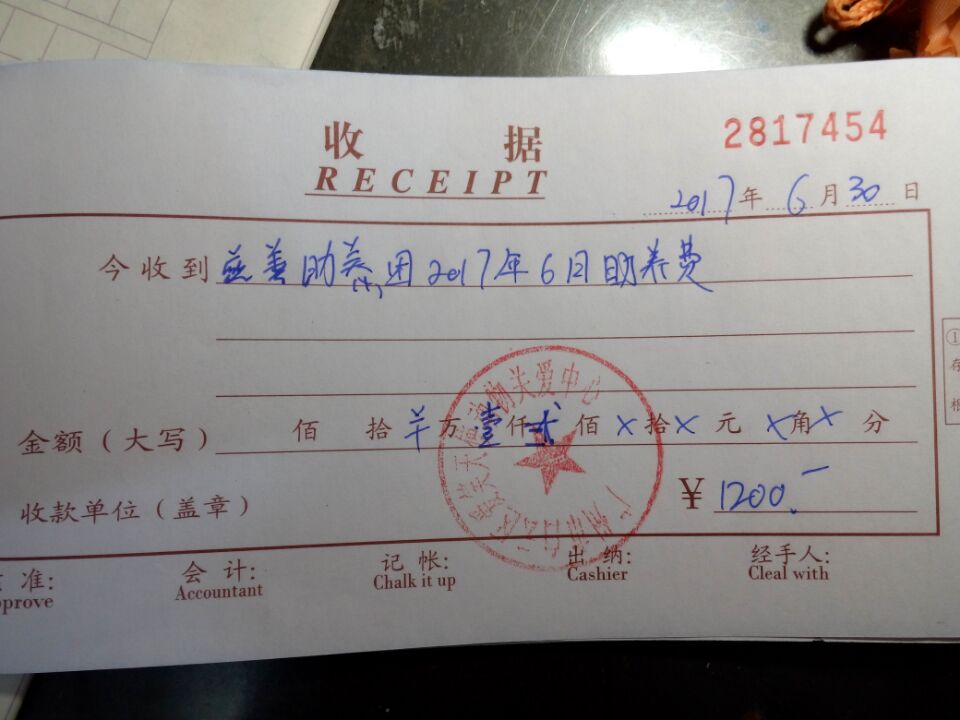 收 据
RECEIPT
2817454
2017年6月30日
今收到 慈善助养(大)团2017年6月助养费
金额（大写） 佰 拾 羊 万 壹 仟 贰 佰 X 拾 X 元 X 角 X 分
收款单位（盖章） ¥ 1200.-
准: 会 计: 记 帐: 出 纳: 经手人:
pprove Accountant Chalk it up Cashier Cleal with
①
存
根